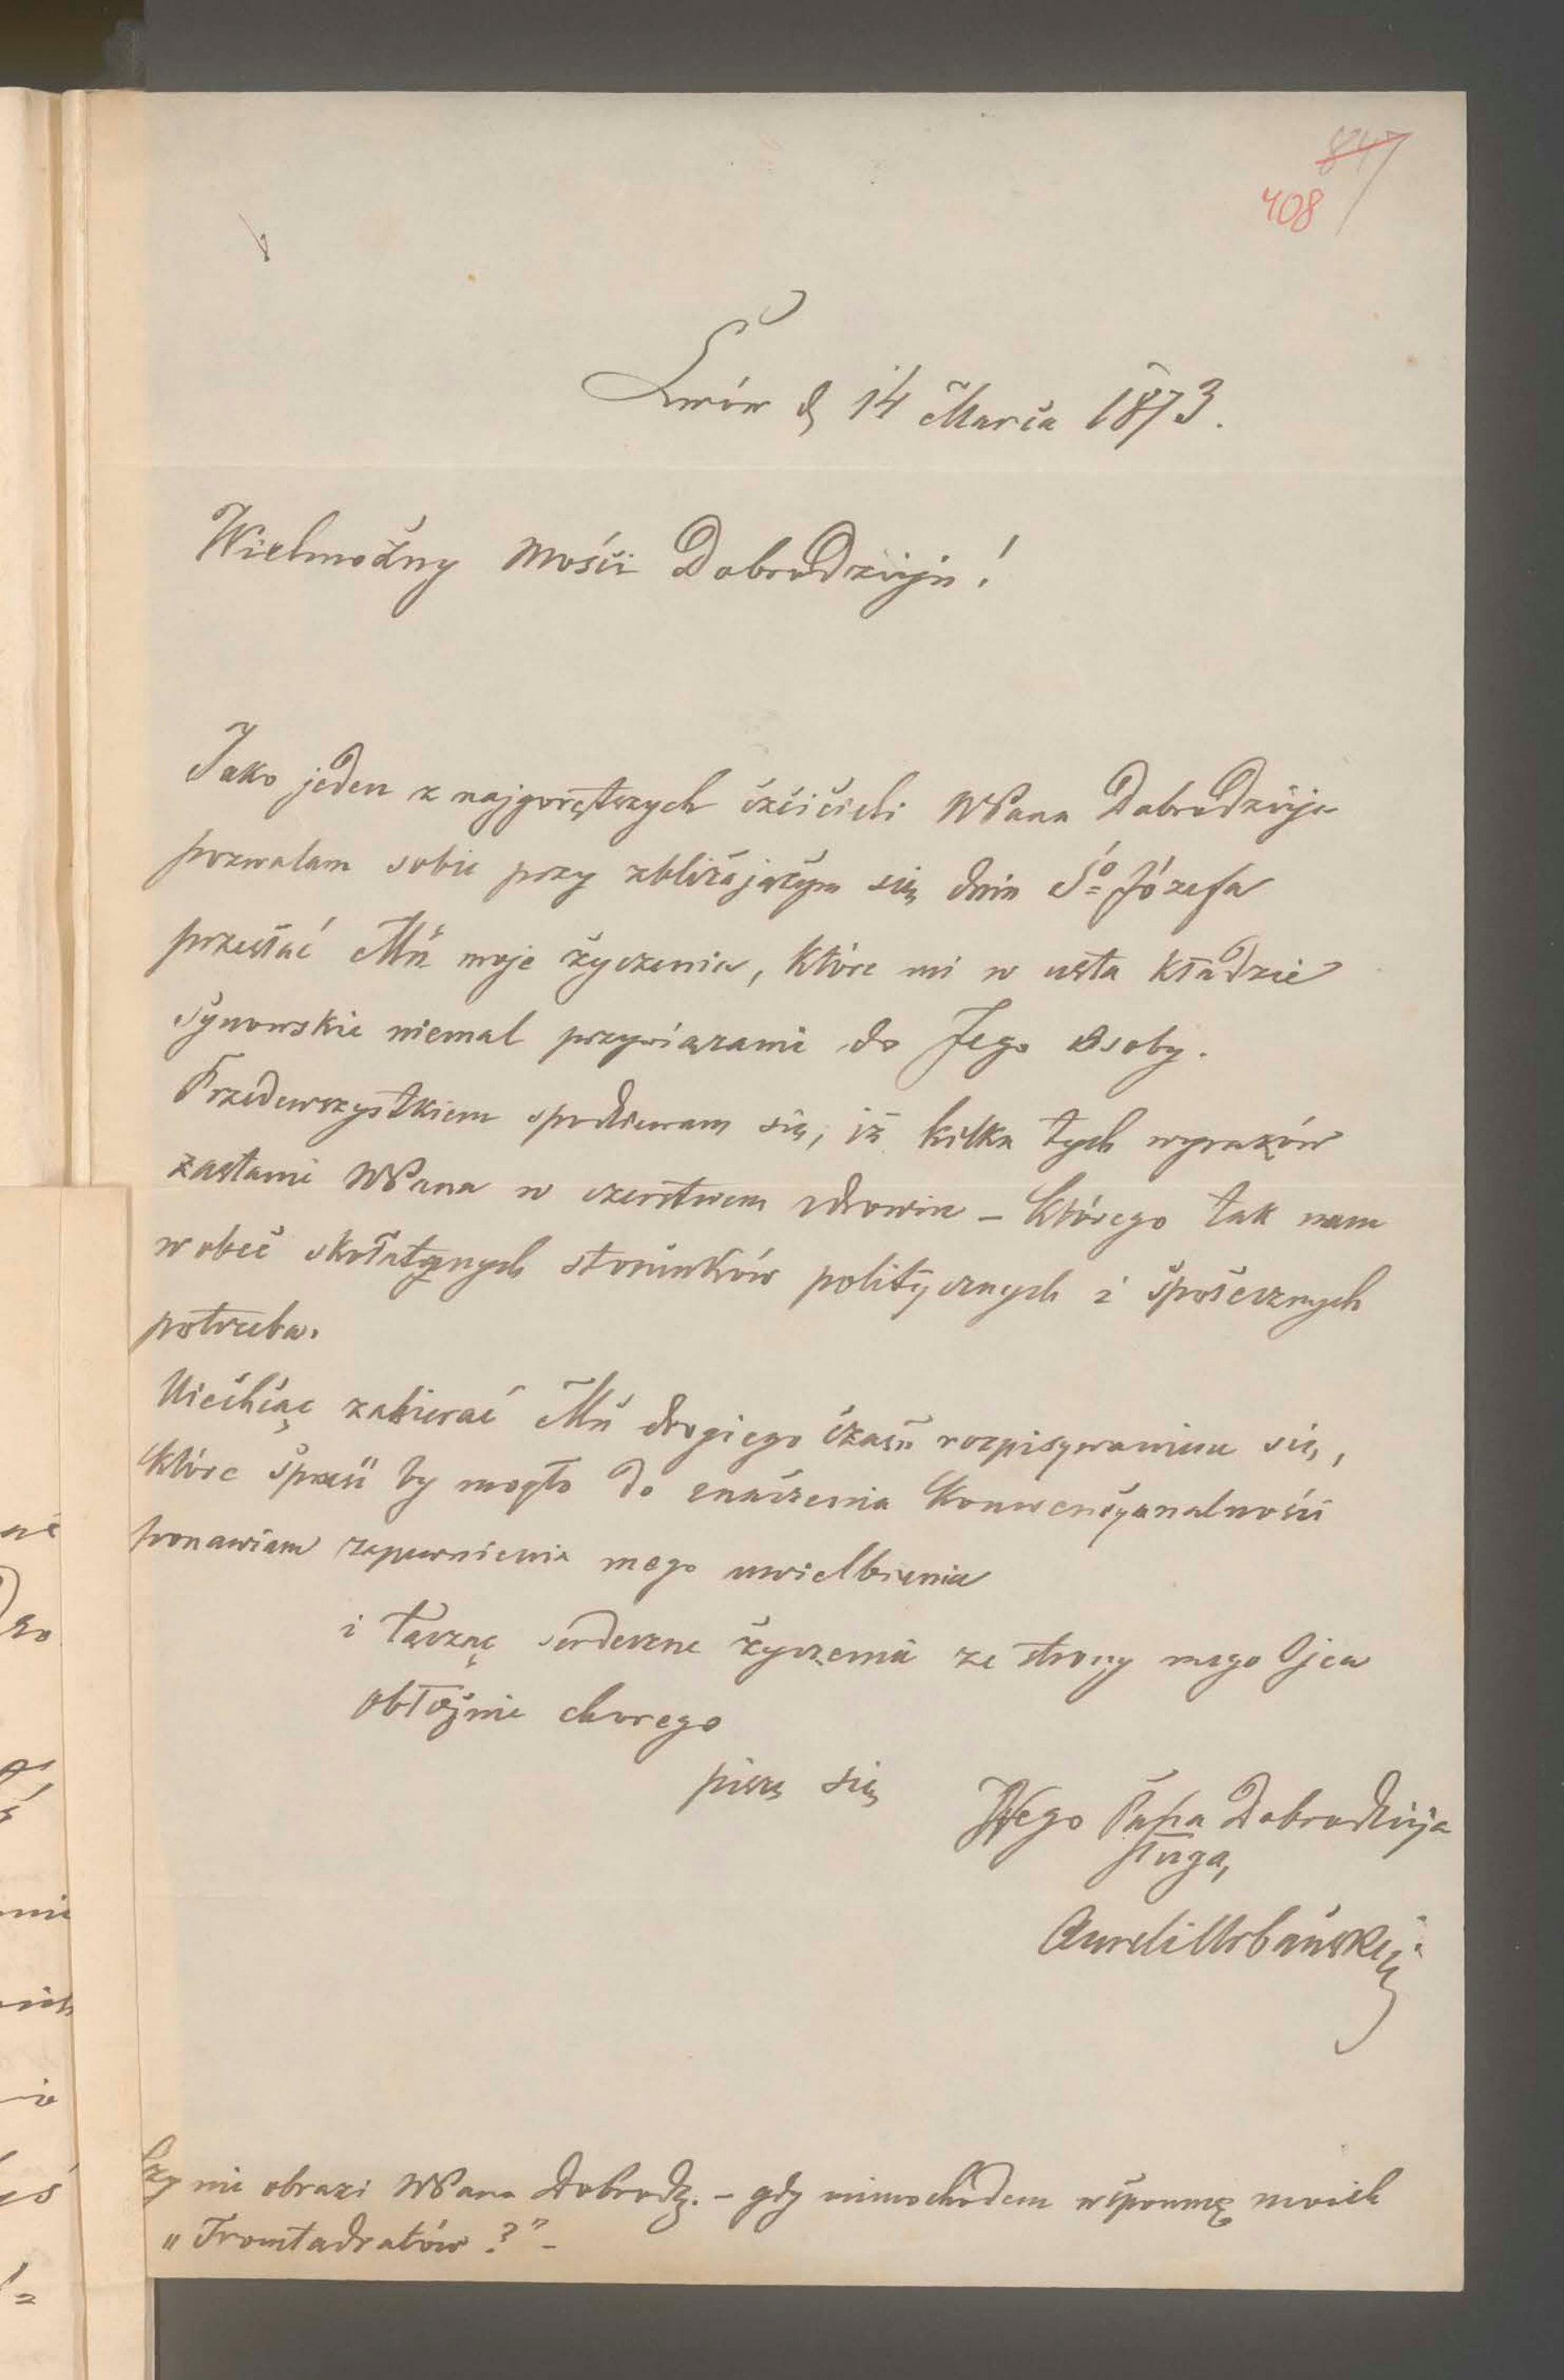 847
408
Lwów d 14 Marca 1873.
Wielmożny Mości Dobrodzieju!
Jako jeden z najgorętszych czcicieli WPana Dobrodzieja
pozwalam sobie przy zbliżającym się dniu Sgo Józefa
przesłać Mu moje życzenia, które mi w usta kładzie
synowskie niemal przywiązanie do Jego osoby.
Przedewszystkiem spodziewam się, iż kilka tych wyrazów
zastanie WPana w czerstwem zdrowiu – którego tak nam
wobec skołatanych stosunków politycznych i społecznych
potrzeba.
Niechcąc zabierać Mu drogiego czasu rozpisywaniem się,
które by mogło do znaczenia konwencyonalności
ponawiam zapewnienia mego uwielbienia
i łączę serdeczne życzenia ze strony mego Ojca
obłożnie chorego
piszę się
Wego Pana Dobrodzieja
sługa,
Aureli Urbański
Czy nie obrazi WPana Dobrodz. – gdy mimochodem wspomnę moich
„Fromtadratów?” –